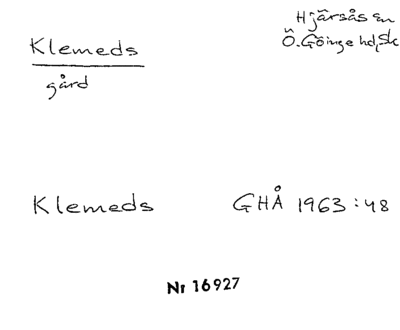 Klemeds
gård
Hjärsås sn
Ö.Göinge hd, Sk
Klemeds GHÅ 1963:48
Nr 16927